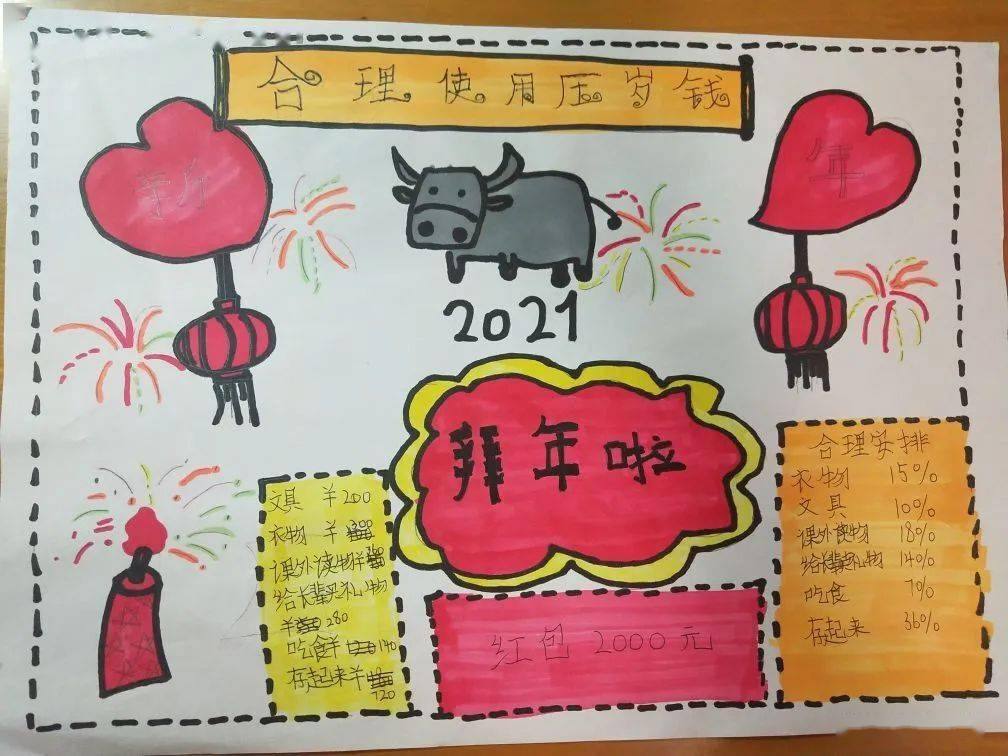 合理使用压岁钱
新
年
2021
拜年啦
文具 ¥200
衣物 ¥
课外读物¥
给长辈买礼物
¥ 280
吃食¥ 140
存起来¥
720
红包 2000元
合理安排
衣物 15%
文具 10%
课外读物 18%
给长辈礼物 14%
吃食 7%
存起来 36%